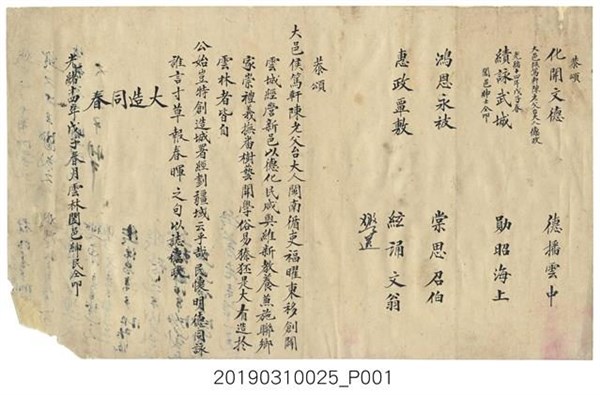 恭頌
化開文德 德播雲中
大邑侯篤軒陳老父台大人德政
光緒十四年戊子春
闔邑紳士仝叩
續詠武城 勛昭海上
鴻恩永被 棠思召伯
惠政覃敷 絃誦文翁
恭頌
大邑侯篤軒陳老父台大人閩南循吏福曜東移創開
雲城經營新邑以德化民咸與維新教養兼施聯鄉
家崇禮義撫番樹藝開學俗易獉狉是大有造於
雲林者皆自
公始豈特創造城署經劃疆域云乎哉民懷明德同詠
雖言寸草報春暉之句以誌德政
大造同春
光緒十四年戊子春月雲林闔邑紳民仝叩
20190310025_P001